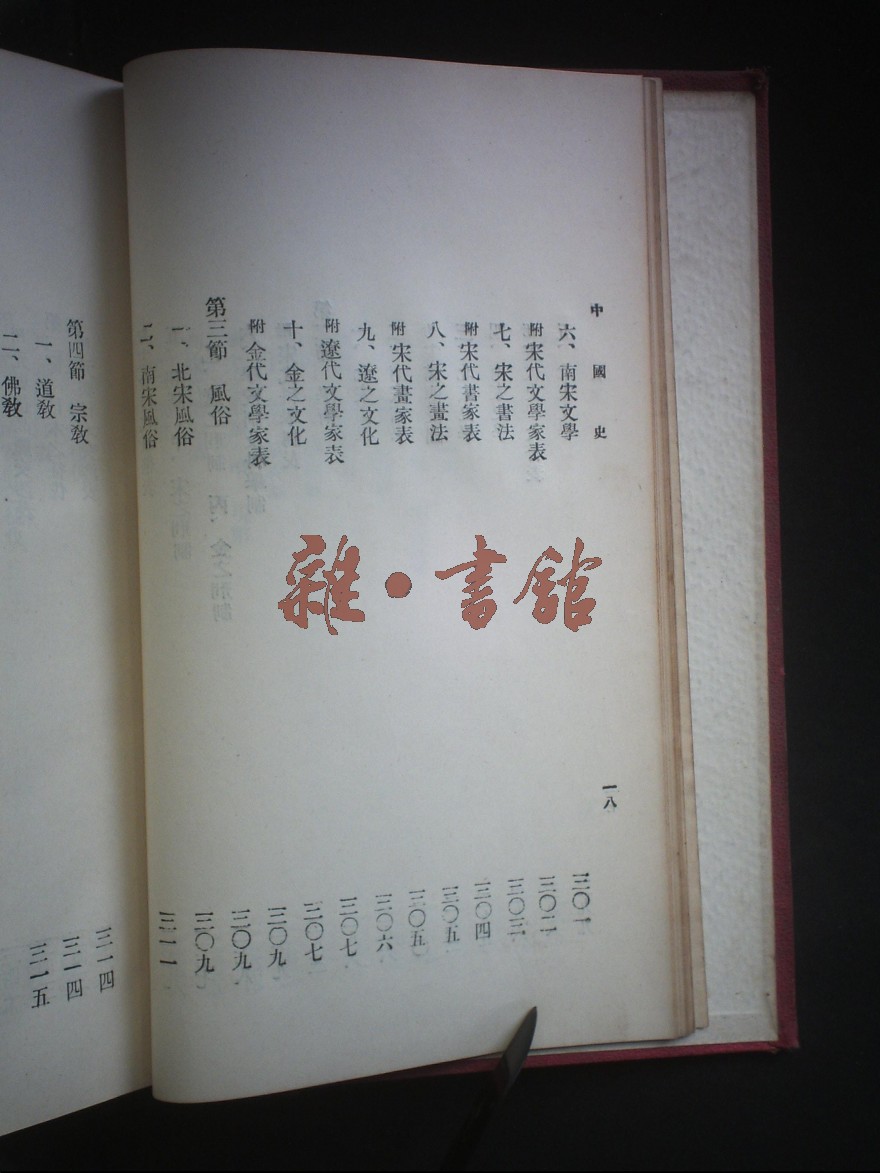 中國史
一八
六、南宋文學 三〇一
附 宋代文學家表 三〇二
七、宋之書法 三〇三
附 宋代書家表 三〇四
八、宋之畫法 三〇五
附 宋代畫家表 三〇五
九、遼之文化 三〇六
附 遼代文學家表 三〇七
十、金之文化 三〇七
附 金代文學家表 三〇九
第三節 風俗 三〇九
一、北宋風俗 三〇九
二、南宋風俗 三一一
第四節 宗教 三一四
一、道教 三一四
二、佛教 三一五
雜·書館